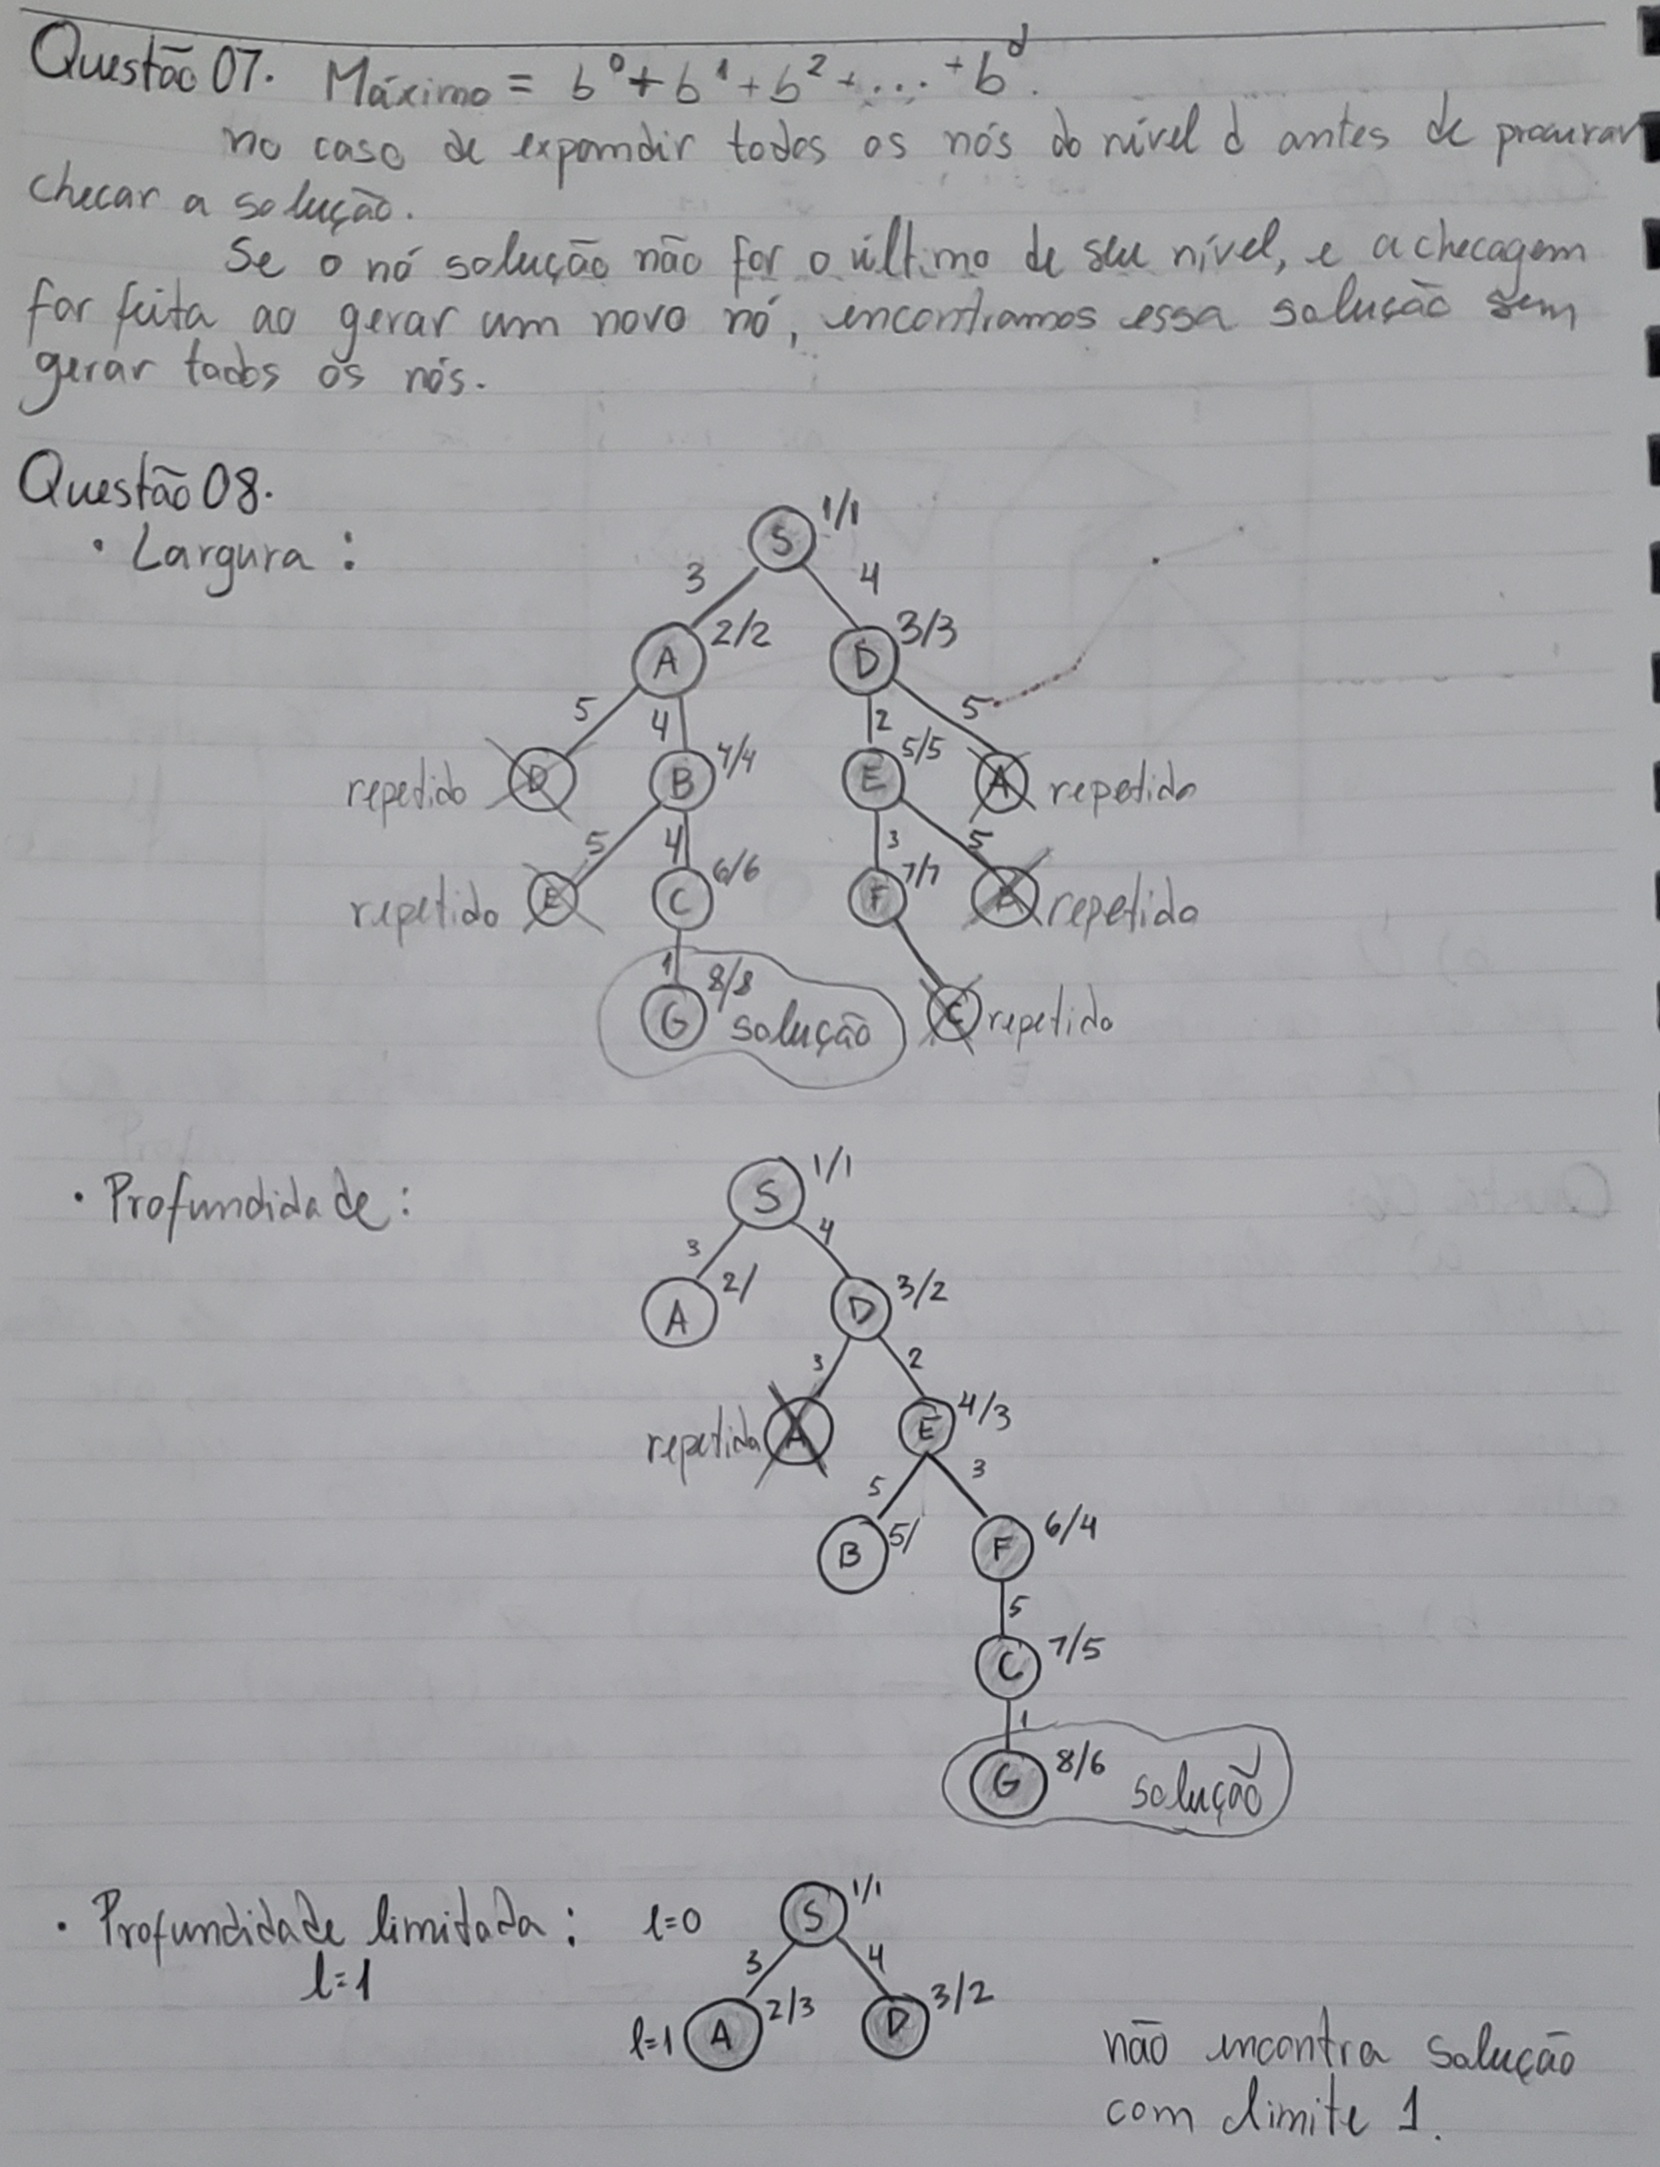 Questão 07. Máximo = b⁰ + b¹ + b² + ... + bᵈ.
no caso de expandir todos os nós do nível d antes de procurar
checar a solução.
Se o nó solução não for o último de seu nível, e a checagem
for feita ao gerar um novo nó, encontramos essa solução sem
gerar todos os nós.
Questão 08.
• Largura:
S 1/1
3 4
A 2/2 D 3/3
5 4 2 5
repetido D B 4/4 E 5/5 A repetido
5 4 3 5
repetido E C 6/6 F 7/7 B repetido
1
G 8/8 solução C repetido
• Profundidade:
S 1/1
3 4
A 2/ D 3/2
3 2
repetida A E 4/3
5 3
B 5/ F 6/4
5
C 7/5
1
G 8/6 solução
• Profundidade limitada: l=0 S 1/1
l=1
3 4
l=1 A 2/3 D 3/2
não encontra solução
com limite 1.